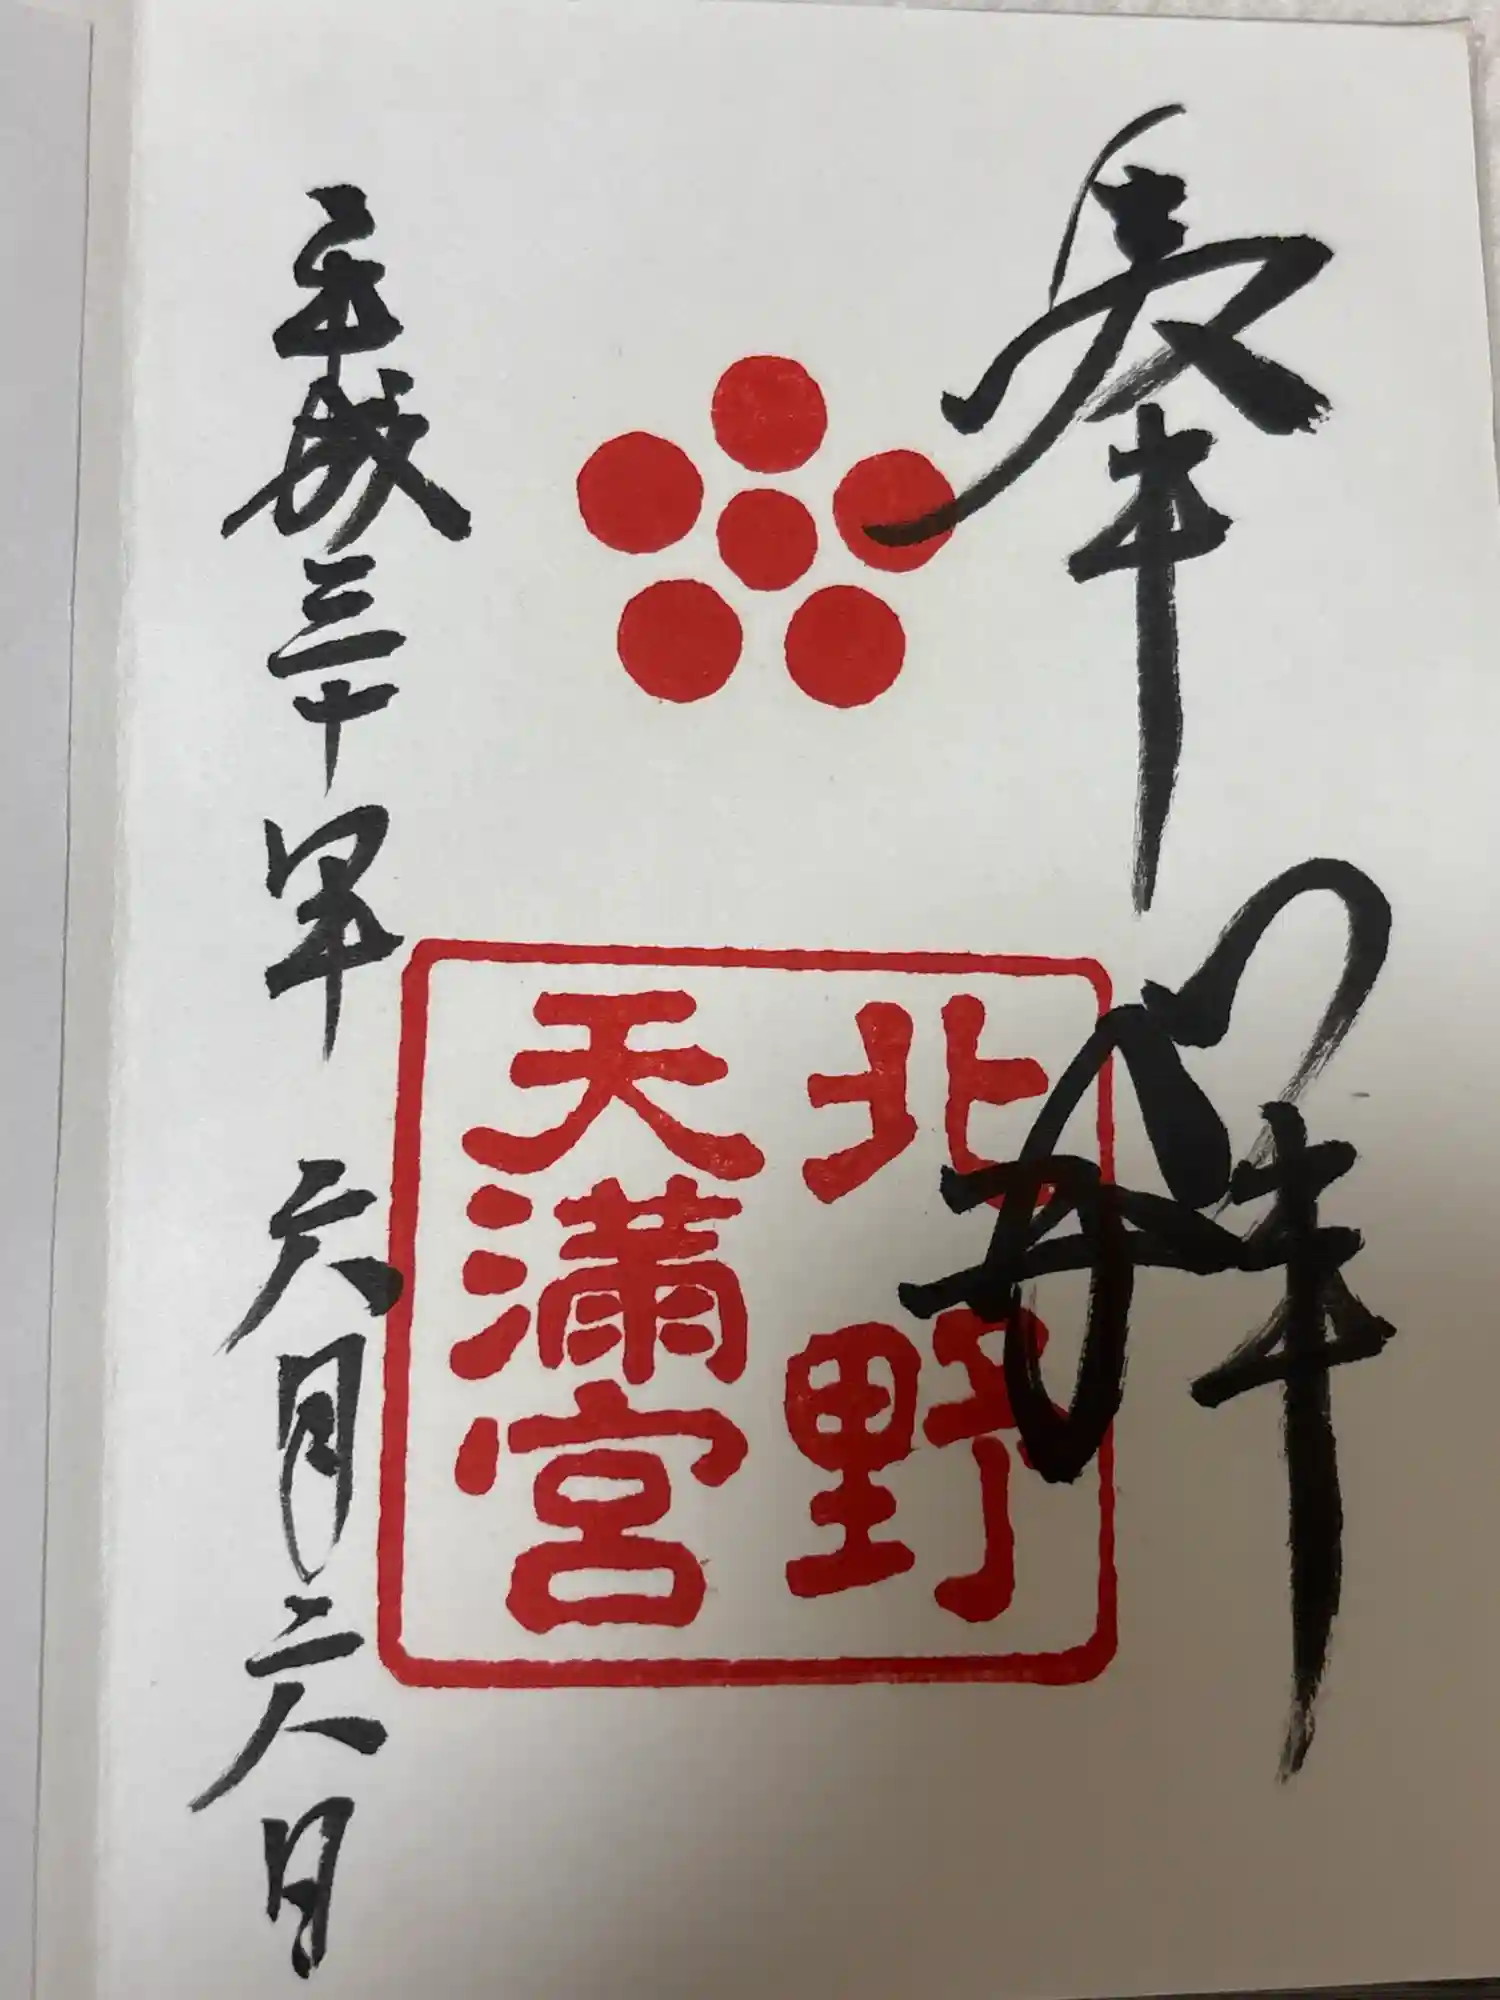 奉拝
北野
天満宮
平成三十年 六月二八日